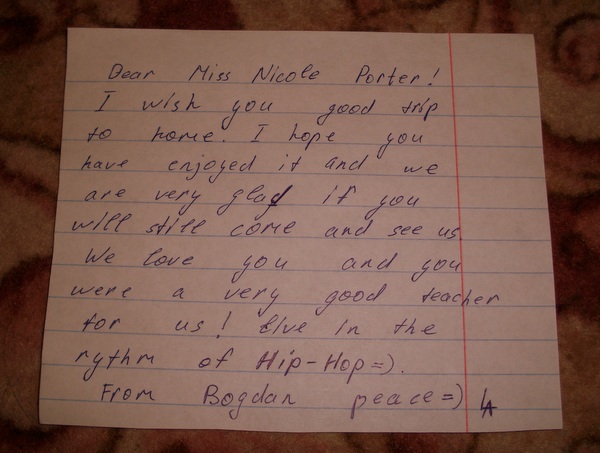 Dear Miss Nicole Porter!
I wish you good trip
to home. I hope you
have enjoyed it and we
are very glad if you
will still come and see us.
We love you and you
were a very good teacher
for us! Live in the
rythm of Hip-Hop=).
From Bogdan peace=)